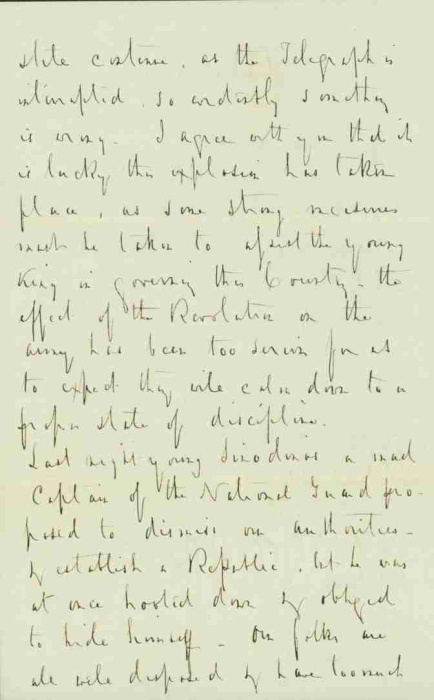 state continue, as the Telegraph is
interrupted, so evidently something
is wrong. I agree with you that it
is lucky this explosion has taken
place, as some strong measures
must be taken to assist the young
King in governing this Country - the
effect of the Revolution on the
army has been too serious for us
to expect they will calm down to a
proper state of discipline.
Last night young a mad
Captain of the National Guard pro-
posed to dismiss our authorities -
& establish a Republic, but he was
at once hooted down & obliged
to hide himself - Our folks are
all well disposed & have too much